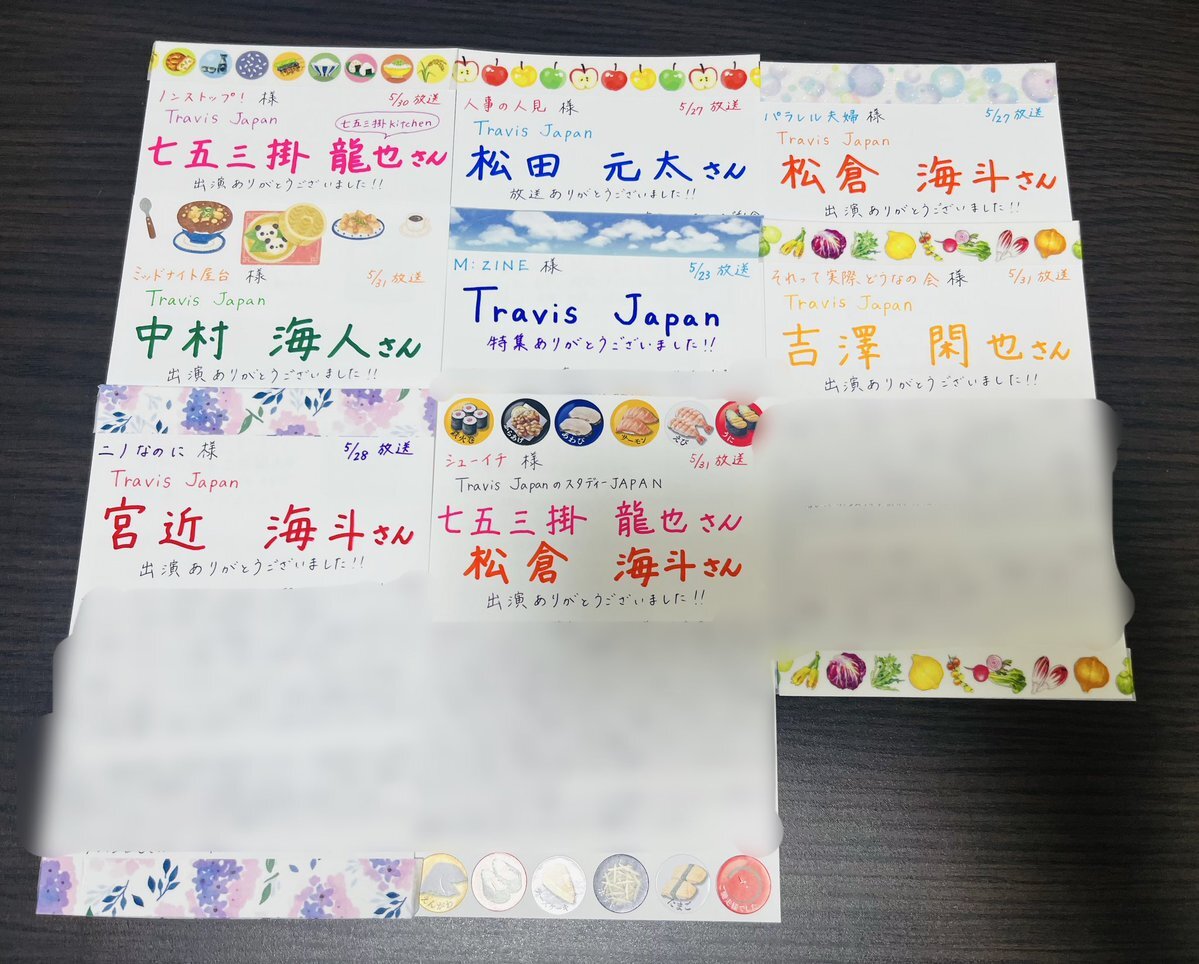 ノンストップ! 様 5/30 放送
Travis Japan 七五三掛kitchen
七五三掛 龍也さん
出演ありがとうございました!!
人事の人見 様 5/27 放送
Travis Japan
松田 元太さん
放送ありがとうございました!!
パラレル夫婦 様 5/27 放送
Travis Japan
松倉 海斗さん
出演ありがとうございました!!
ミッドナイト屋台 様 5/31 放送
Travis Japan
中村 海人さん
出演ありがとうございました!!
M:ZINE 様 5/23 放送
Travis Japan
特集ありがとうございました!!
それって実際、どうなの会 様 5/31 放送
Travis Japan
吉澤 閑也さん
出演ありがとうございました!!
ニノなのに 様 5/28 放送
Travis Japan
宮近 海斗さん
出演ありがとうございました!!
あわび サーモン えび うに
シューイチ 様 5/31 放送
Travis JapanのスタディーJAPAN
七五三掛 龍也さん
松倉 海斗さん
出演ありがとうございました!!
えんがわ たまご